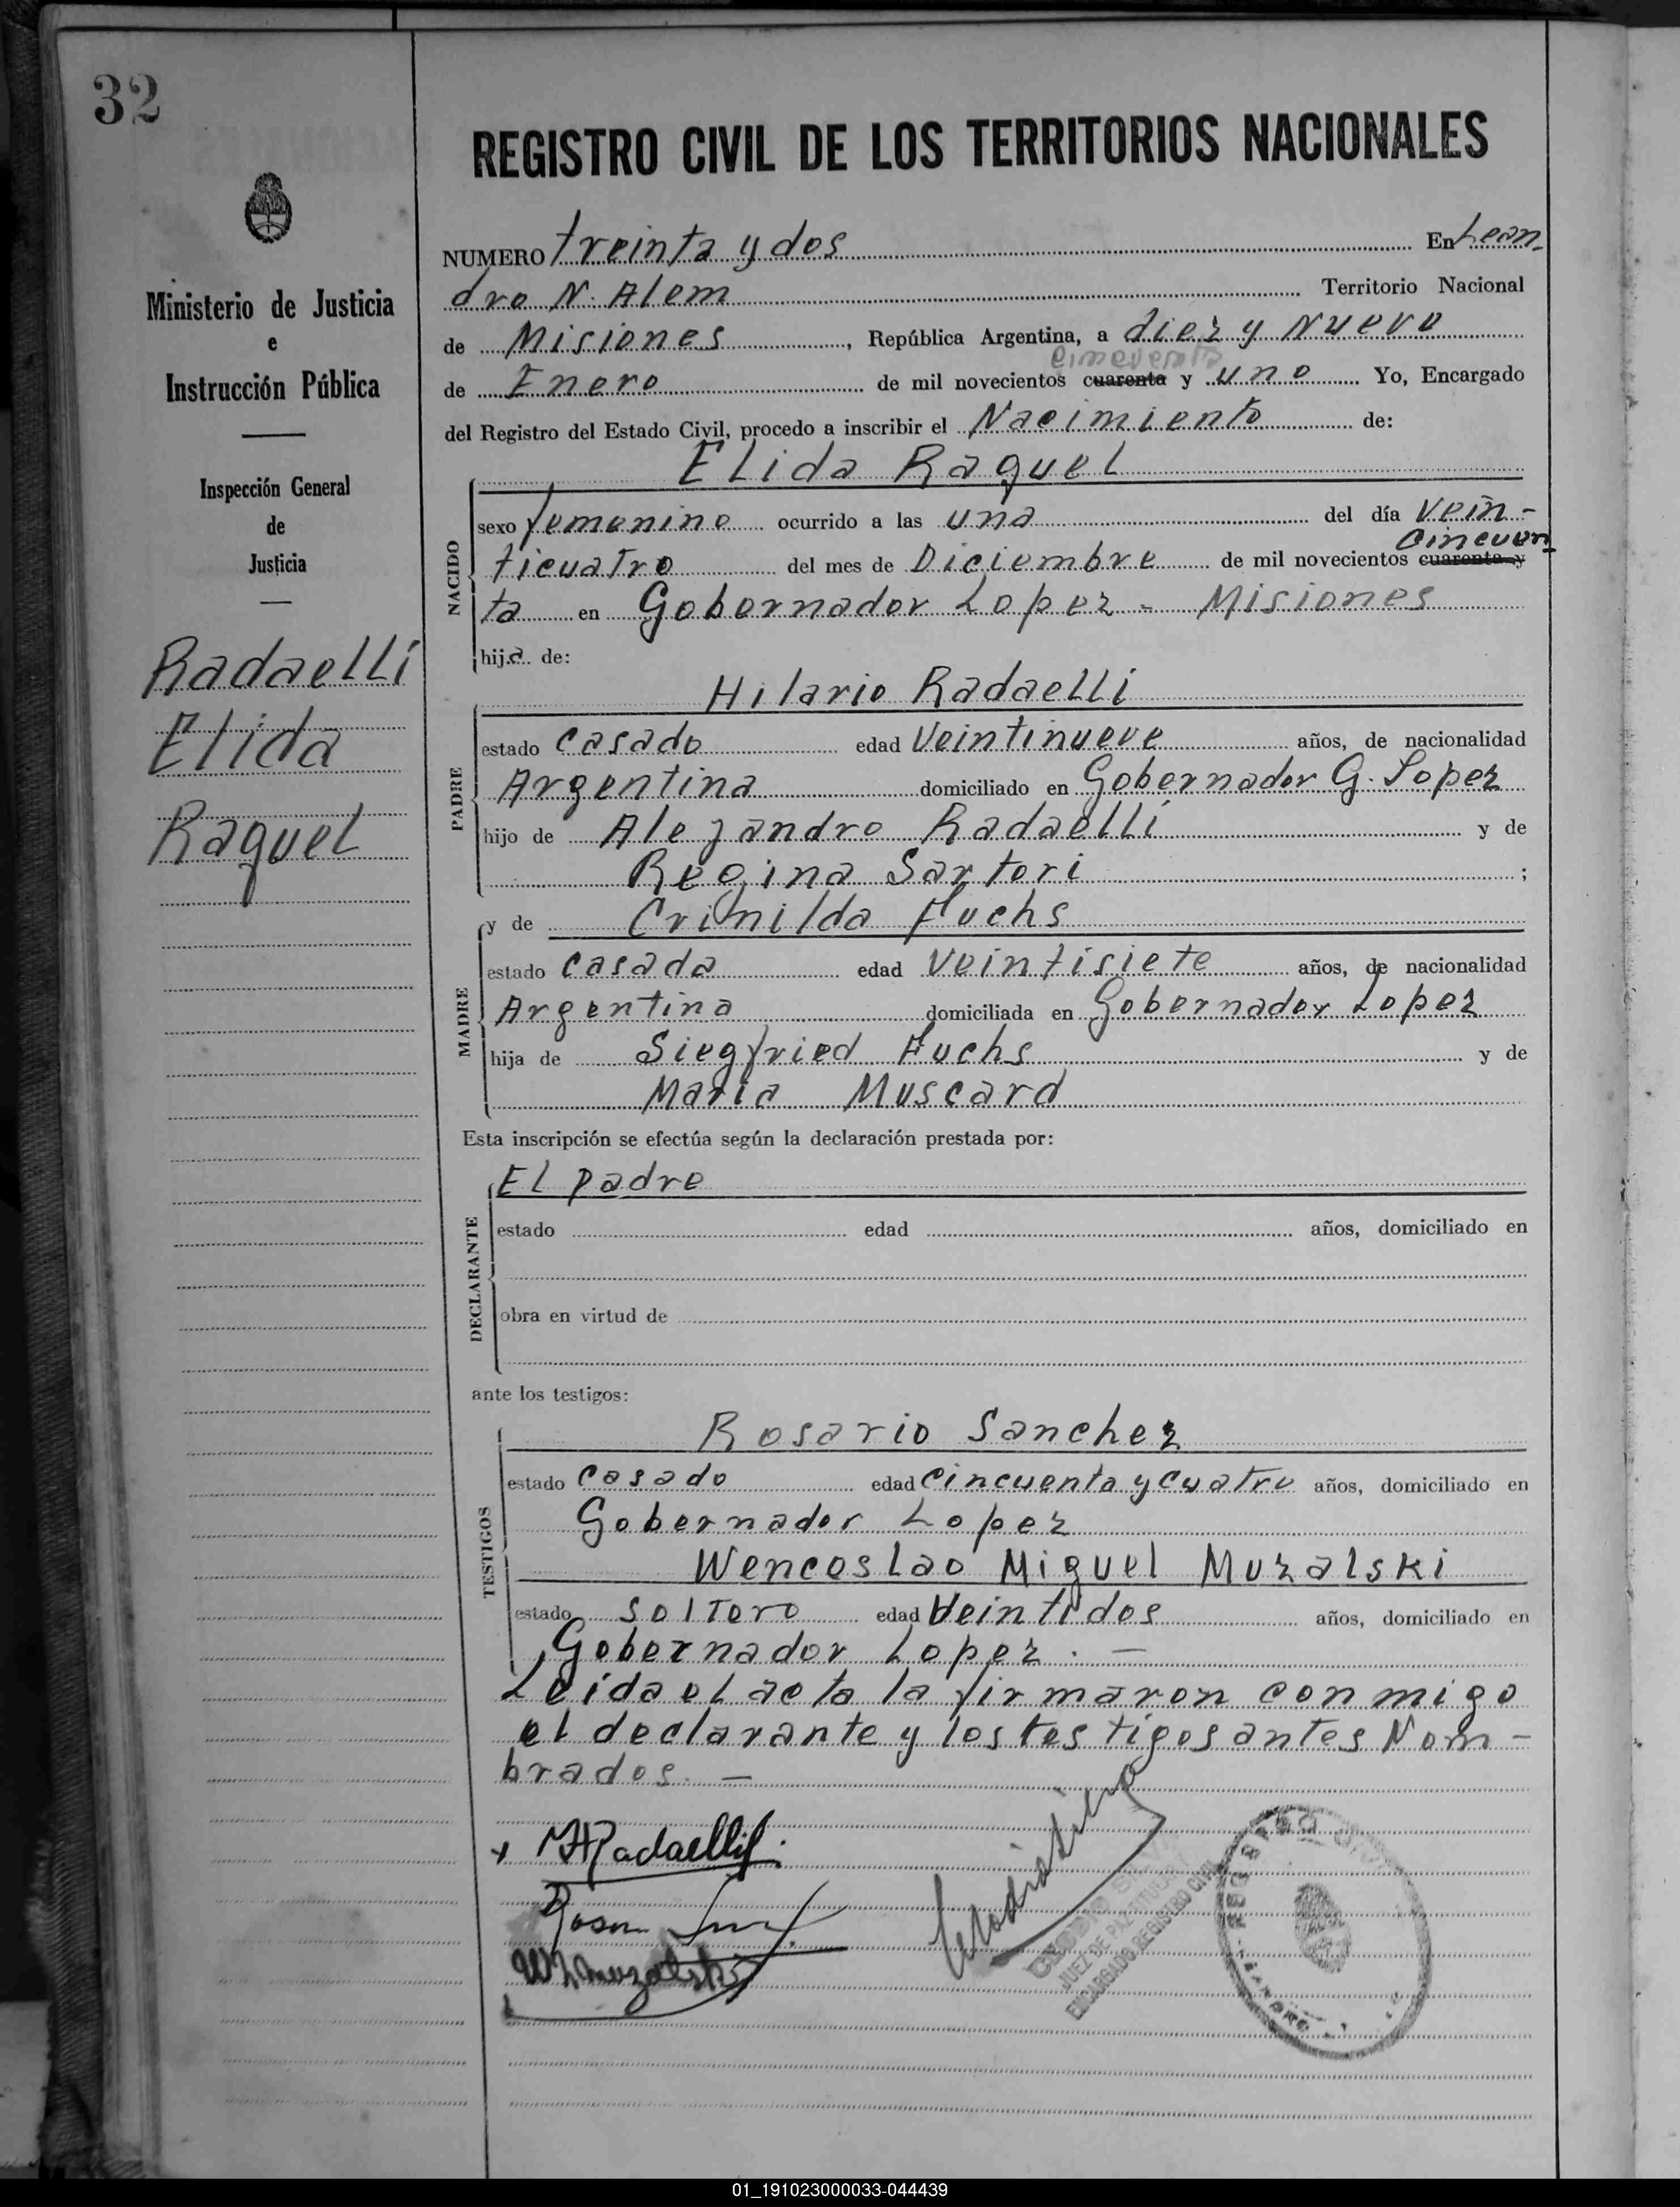 32
REGISTRO CIVIL DE LOS TERRITORIOS NACIONALES
Ministerio de Justicia
e
Instrucción Pública
Inspección General
de
Justicia
Radaelli
Elida
Raquel
NUMERO treinta y dos En Lean-
dro N. Alem Territorio Nacional
de Misiones, República Argentina, a diez y Nueve
cincuenta
de Enero de mil novecientos cuarenta y uno Yo, Encargado
del Registro del Estado Civil, procedo a inscribir el Nacimiento de:
Elida Raquel
NACIDO
sexo femenino ocurrido a las una del día Vein-
cincuen
ticuatro del mes de Diciembre de mil novecientos cuarenta y
ta en Gobernador Lopez - Misiones
hija de:
Hilario Radaelli
PADRE
estado casado edad Veintinueve años, de nacionalidad
Argentina domiciliado en Gobernador G. Lopez
hijo de Alejandro Radaelli y de
Regina Sartori ;
y de Crimilda Fuchs
MADRE
estado casada edad Veintisiete años, de nacionalidad
Argentina domiciliada en Gobernador Lopez
hija de Siegfried Fuchs y de
Maria Muscard
Esta inscripción se efectúa según la declaración prestada por:
El padre
DECLARANTE
estado edad años, domiciliado en
obra en virtud de
ante los testigos:
Rosario Sanchez
TESTIGOS
estado casado edad cincuenta y cuatro años, domiciliado en
Gobernador Lopez
Wenceslao Miguel Muzalski
estado soltero edad Veintidos años, domiciliado en
Gobernador Lopez. —
Leida el acta la firmaron conmigo
el declarante y los testigos antes Nom-
brados. —
x HRadaelli
WMuzalski
JUEZ DE PAZ TITULAR
ENCARGADO REGISTRO CIVIL
REGISTRO
01_191023000033-044439